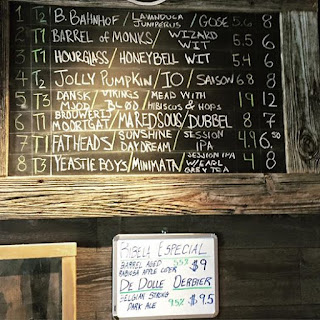 1 T2 B. BAHNHOF / LAVANDULA JUNIPERUS / GOSE 5.6 8
2 T1 BARREL OF MONKS / WIZARD WIT 5.5 6
3 T1 HOURGLASS / HONEYBELL WIT 5.4 6
4 T2 JOLLY PUMPKIN / IO / SAISON 6.8 8
5 T3 DANSK MJOD / VIKINGS BLØD / MEAD WITH HIBISCUS & HOPS 19 12
6 T1 BROUWERIJ MOORTGAT / MAREDSOUS / DUBBEL 8 7
7 T1 FATHEADS / SUNSHINE DAYDREAM / SESSION IPA 4.9 6.50
8 T3 YEASTIE BOYS / MINIMATN / SESSION IPA W/ EARL GREY TEA 4 8
ESPECIAL
BARREL AGED 5.5%
APPLE CIDER $9
DE DOLLE DERBIER
BELGIAN STRONG
DARK ALE 9.5% $9.5